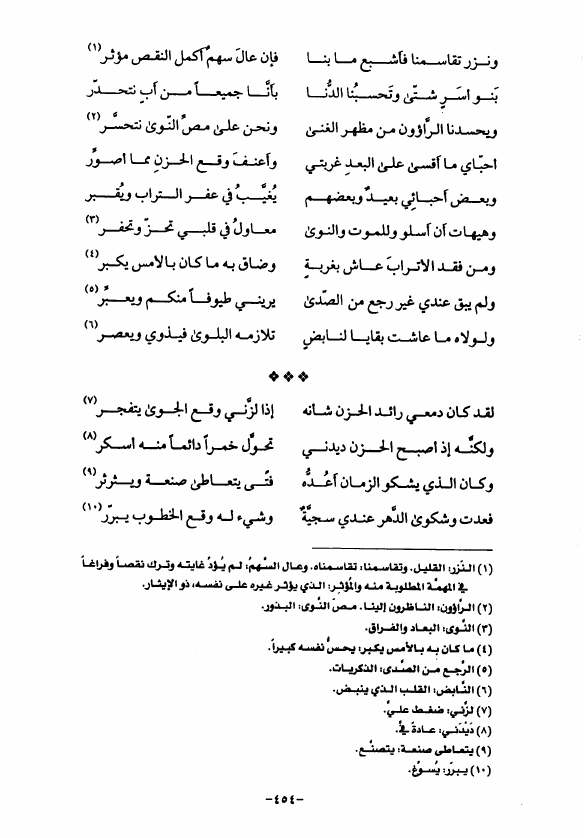 ونـزر تقاسـمنا فأشـبع مـا بنـا فإن عالَ سهمٌ أكمل النقـص مؤثـر(١)
بَنـو أسَـرٍ شتّىٰ وتَحسبُنا الدُّنـا بأنَّـا جميعـاً مـن أبٍ نتحـدّر
ويحسدنا الـرَّاؤون من مظهر الغنىٰ ونحن على مصِّ النّوىٰ نتحسَّر(٢)
أحبّاي ما أقسىٰ علىٰ البعد غربتي وأعنـفَ وقـع الحـزن ممـا أصـوِّر
وبعـض أحبـائي بعيـدٌ وبعضهـم يُغيَّـبُ في عفـر الـتراب ويُقـبر
وهيهات أن أسلو وللموت والنوىٰ معـاولُ في قلبـي تحـزّ وتحفـر(٣)
ومـن فقـد الأترابَ عـاش بغربـةٍ وضاق به ما كان بالأمس يكبر(٤)
ولم يبق عندي غير رجع من الصّدىٰ يرينـي طيوفـاً منكـم ويعبِّـر(٥)
ولـولاه مـا عاشت بقايـا لنـابضٍ تلازمـه البلـوىٰ فيـذوي ويعصـر(٦)
❖ ❖ ❖
لقـد كـان دمعـي رائـد الحـزن شأنه إذا لزَّنـي وقـع الجـوىٰ يتفجـر(٧)
ولكنَّـه إذ أصبـح الحـزن ديدنـي تحوَّل خمراً دائمـاً منـه أسكـر(٨)
وكـان الـذي يشكـو الزمـان أعـدُّه فتًـى يتعـاطىٰ صنعـة ويـثرثر(٩)
فعدت وشكوىٰ الدَّهر عندي سجيَّةٌ وشيء لـه وقـع الخطـوب يـبرّر(١٠)
(١) النَّزر: القليل. وتقاسمنا: تقاسمناه. وعال السَّهمُ: لم يُؤدِّ غايته وترك نقصـاً وفراغـاً
في المهمَّة المطلوبة منه والمُؤثر: الذي يؤثر غيره على نفسه، ذو الإيثار.
(٢) الرَّاؤون: الناظرون إلينا. مـصّ النَّوى: البذور.
(٣) النَّوى: البعاد والفراق.
(٤) ما كان به بالأمس يكبر: يحسُّ نفسه كبيراً.
(٥) الرَّجع من الصَّدى: الذكريات.
(٦) النَّابض: القلب الذي ينبض.
(٧) لزَّني: ضغط عليَّ.
(٨) دَيْدَني: عادةً فيَّ.
(٩) يتعاطى صنعة: يتصنَّع.
(١٠) يبرّر: يُسوِّغ.
-٤٥٤-